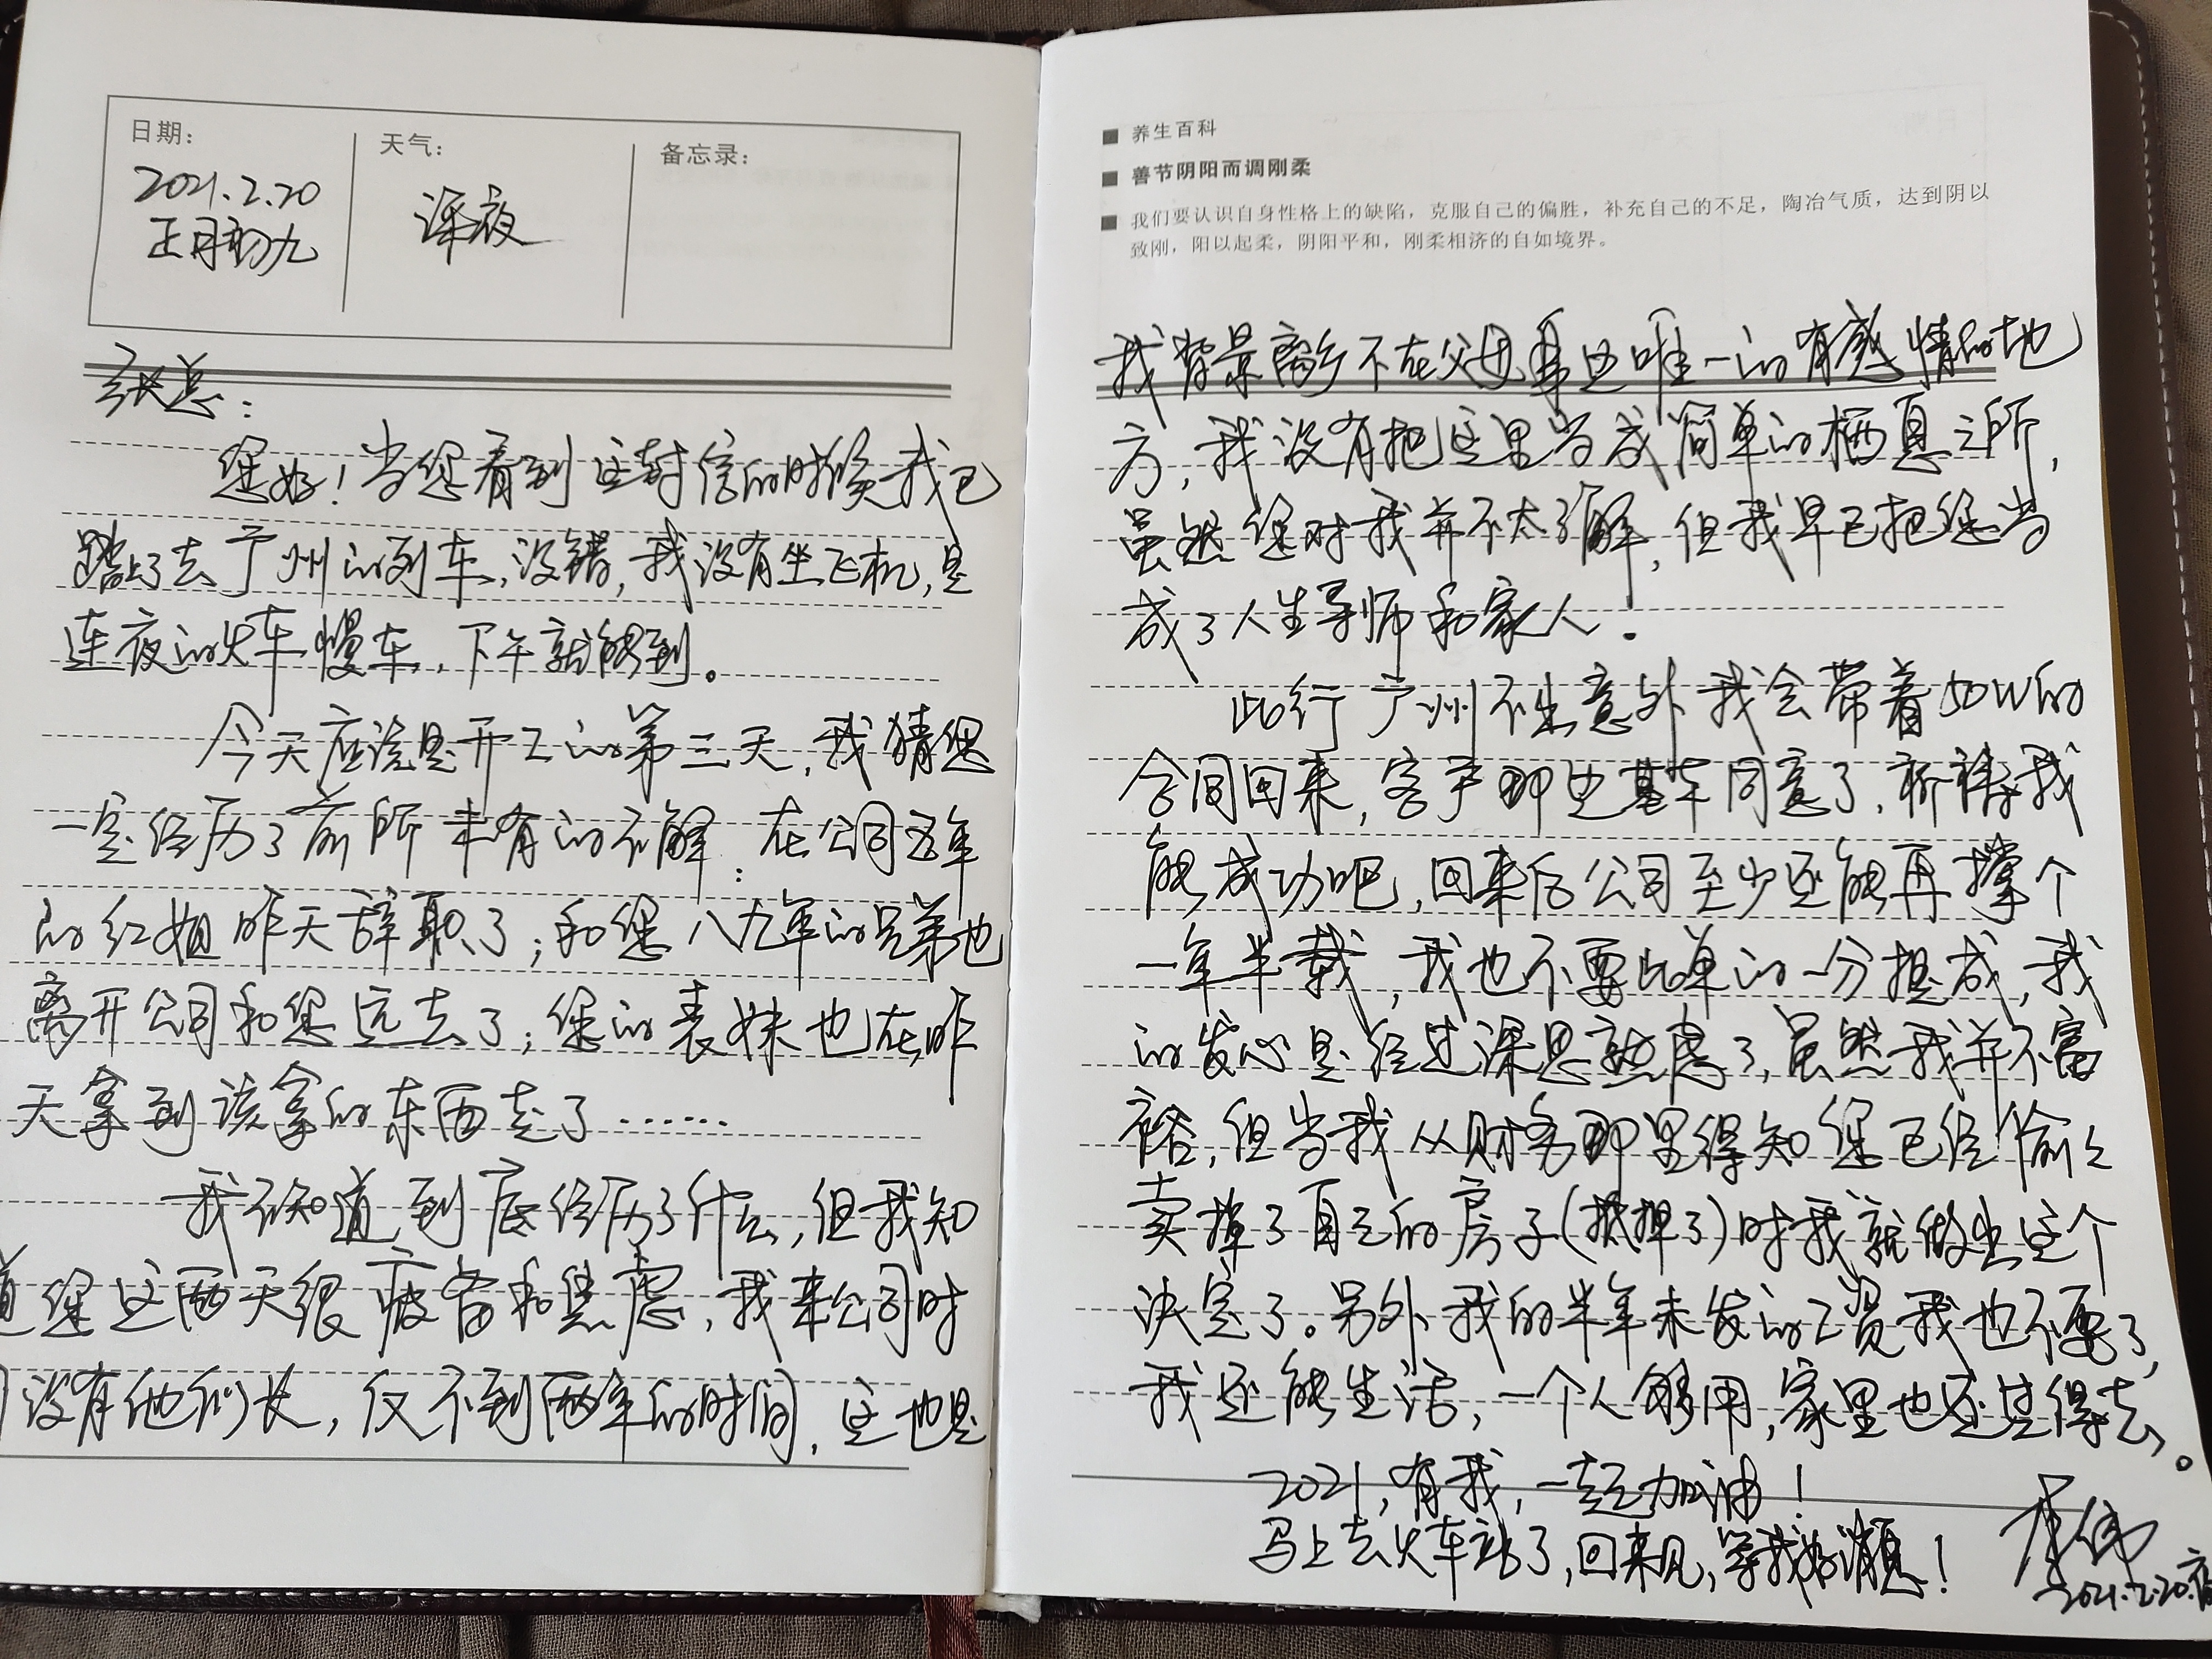 日期：
2021.2.20
正月初九
天气：
深夜
备忘录：
张总：
您好！当您看到这封信的时候我已
踏上了去广州的列车，没错，我没有坐飞机，是
连夜的火车慢车，下午就能到。
今天应该是开工的第三天，我猜您
一定经历了前所未有的不解：在公司五年
的红姐昨天辞职了；和您八九年的兄弟也
离开公司和您远去了；您的表妹也在昨
天拿到该拿的东西走了……
我不知道到底经历了什么，但我知
道您这两天很疲惫和焦虑，我来公司时
间没有他们长，仅不到两年的时间，这也是
养生百科
善节阴阳而调刚柔
我们要认识自身性格上的缺陷，克服自己的偏胜，补充自己的不足，陶冶气质，达到阴以
致刚，阳以起柔，阴阳平和，刚柔相济的自如境界。
我背景离乡不在父母身边唯一的有感情的地
方，我没有把这里当成简单的栖息之所，
虽然您对我并不太了解，但我早已把您当
成了人生导师和家人。
此行广州不出意外我会带着50W的
合同回来，客户那边基本同意了，祈祷我
能成功吧，回来后公司至少还能再撑个
一年半载，我也不要此单的一分提成，我
的发心是经过深思熟虑了，虽然我并不富
裕，但当我从财务那里得知您已经偷偷
卖掉了自己的房子（抵押了）时我就做出这个
决定了。另外我的半年未发的工资我也不要了，
我还能生活，一个人够用，家里也还过得去。
2021，有我，一起加油！
马上去火车站了，回来见，等我好消息！
李伟
2021.2.20.夜